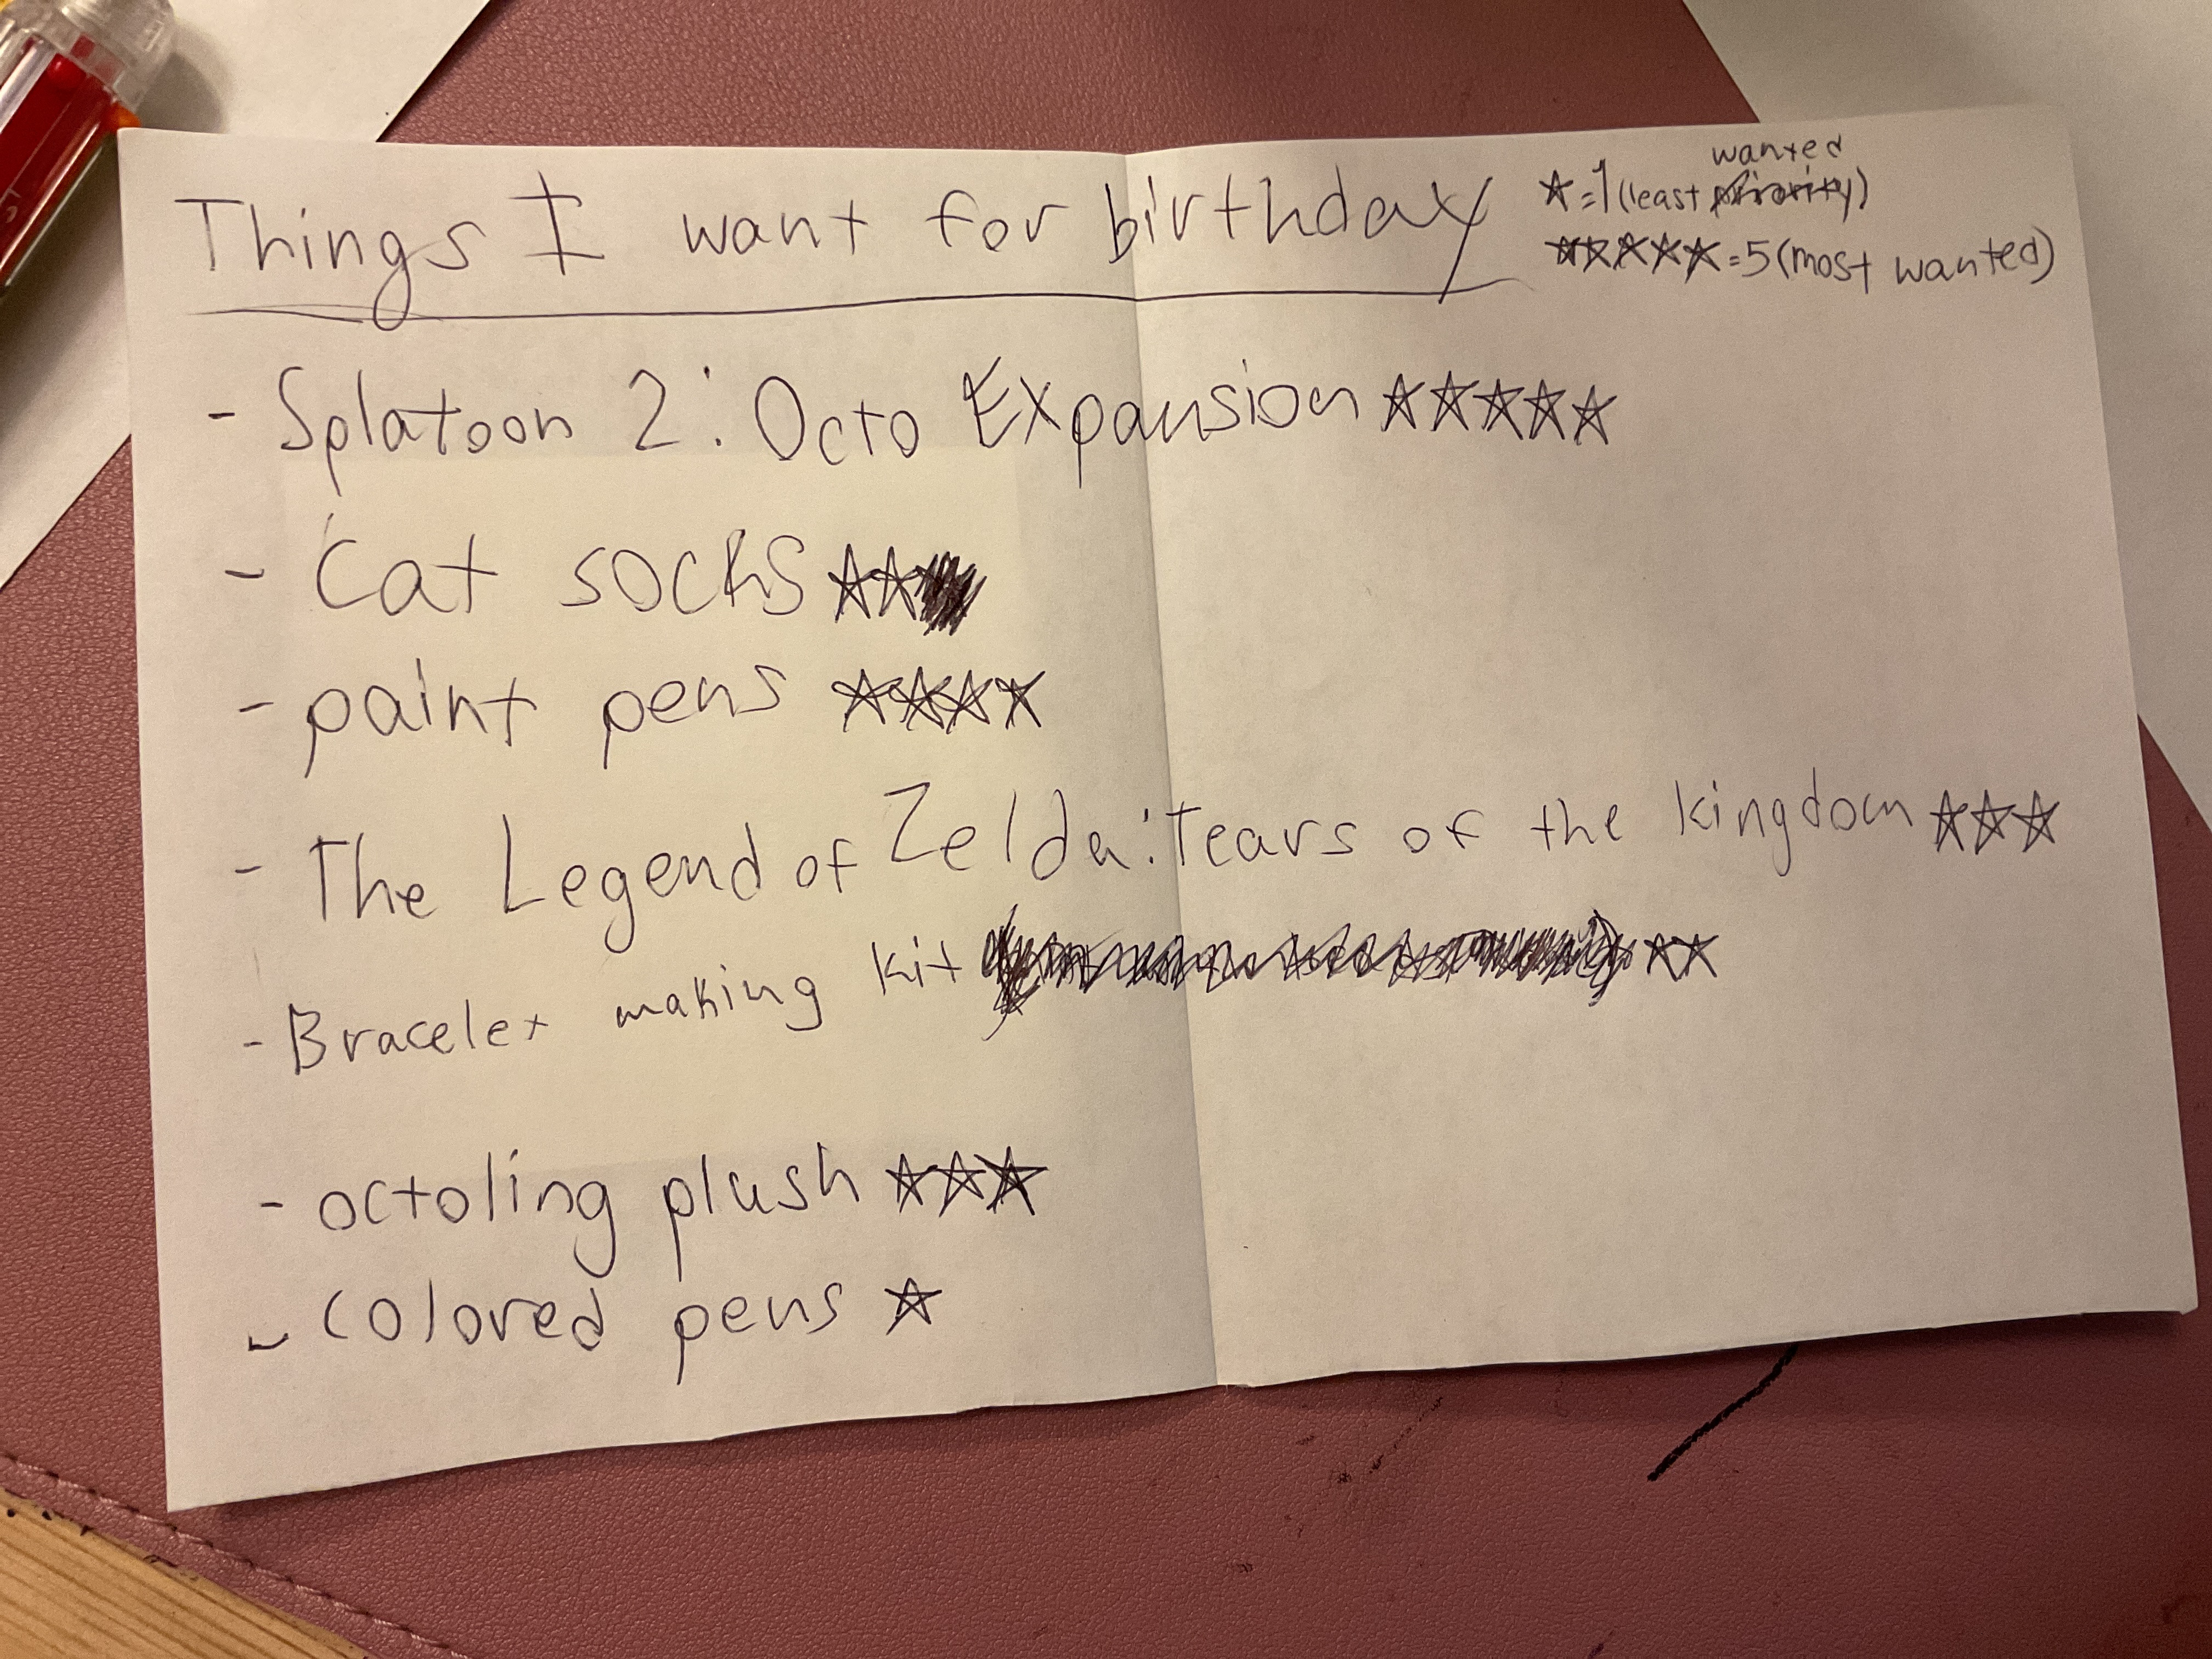 Things I want for birthday
★=1(least wanted)
★★★★★=5(most wanted)
- Splatoon 2: Octo Expansion ★★★★★
- Cat socks ★★
- paint pens ★★★★
- The Legend of Zelda: Tears of the kingdom ★★★
- Bracelet making kit ★★
- octoling plush ★★★
- colored pens ★